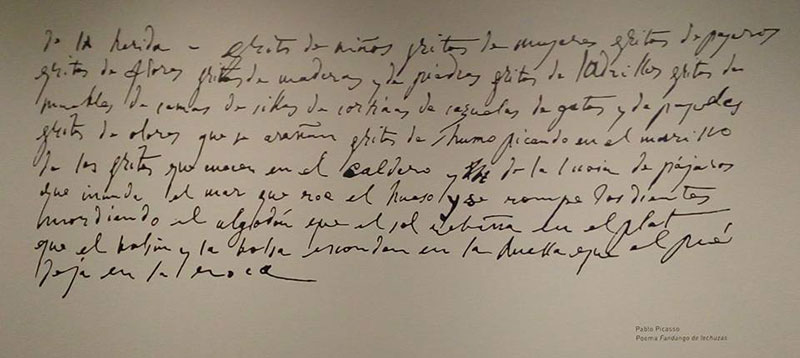 de la herida - gritos de niños gritos de mugeres gritos de pajaros
gritos de flores gritos de maderas y de piedras gritos de ladrillos gritos de
muebles de camas de sillas de cortinas de cazuelas de gatos y de papeles
gritos de olores que se arañan gritos de humo picando en el morrillo
de los gritos que cuecen en el caldero y de la lluvia de pájaros
que inunda el mar que roe el hueso y se rompe los dientes
mordiendo el algodón que el sol rebaña en el plat
que el bolsín y la bolsa esconden en la huella que el pié
deja en la roca
Pablo Picasso
Poema Fandango de lechuzas